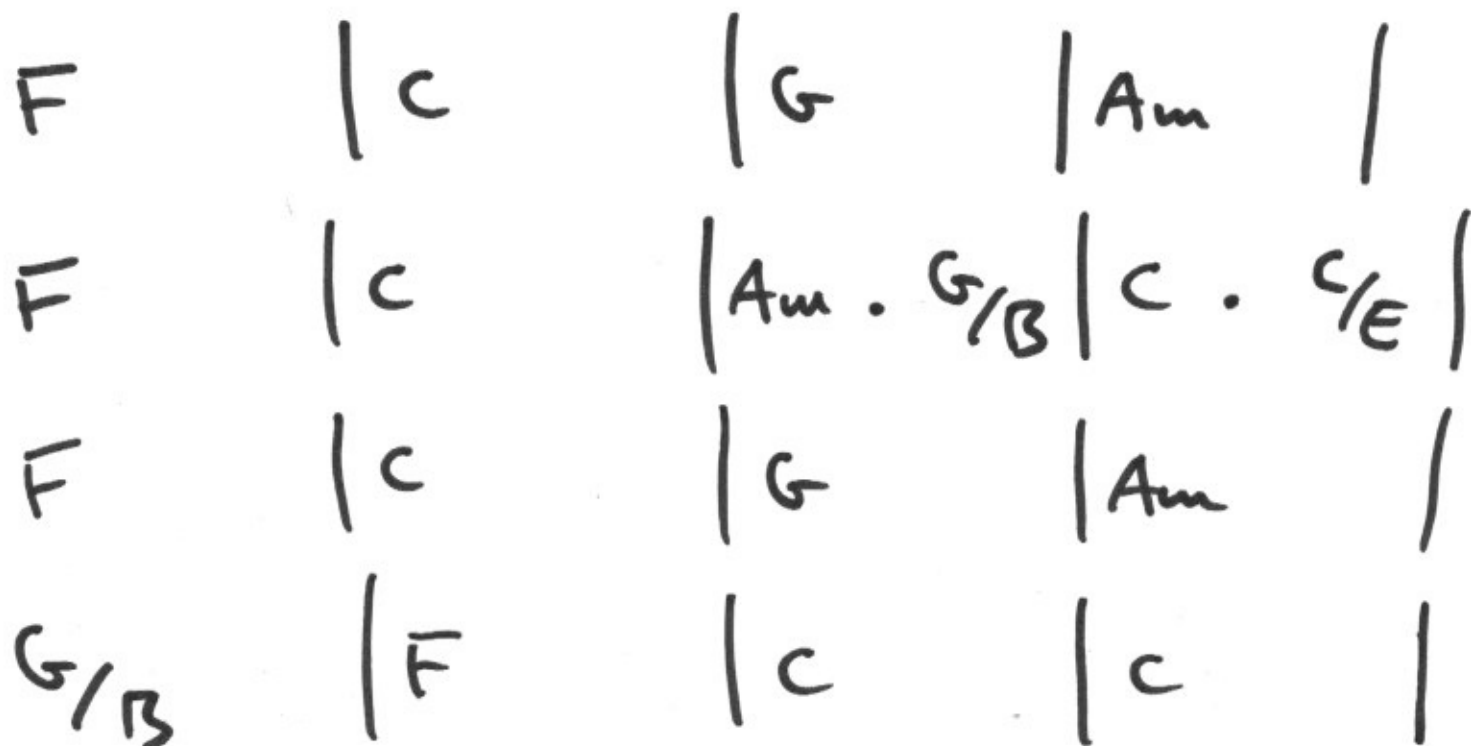 F | C | G | Am |
F | C | Am . G/B | C . C/E |
F | C | G | Am |
G/B | F | C | C |